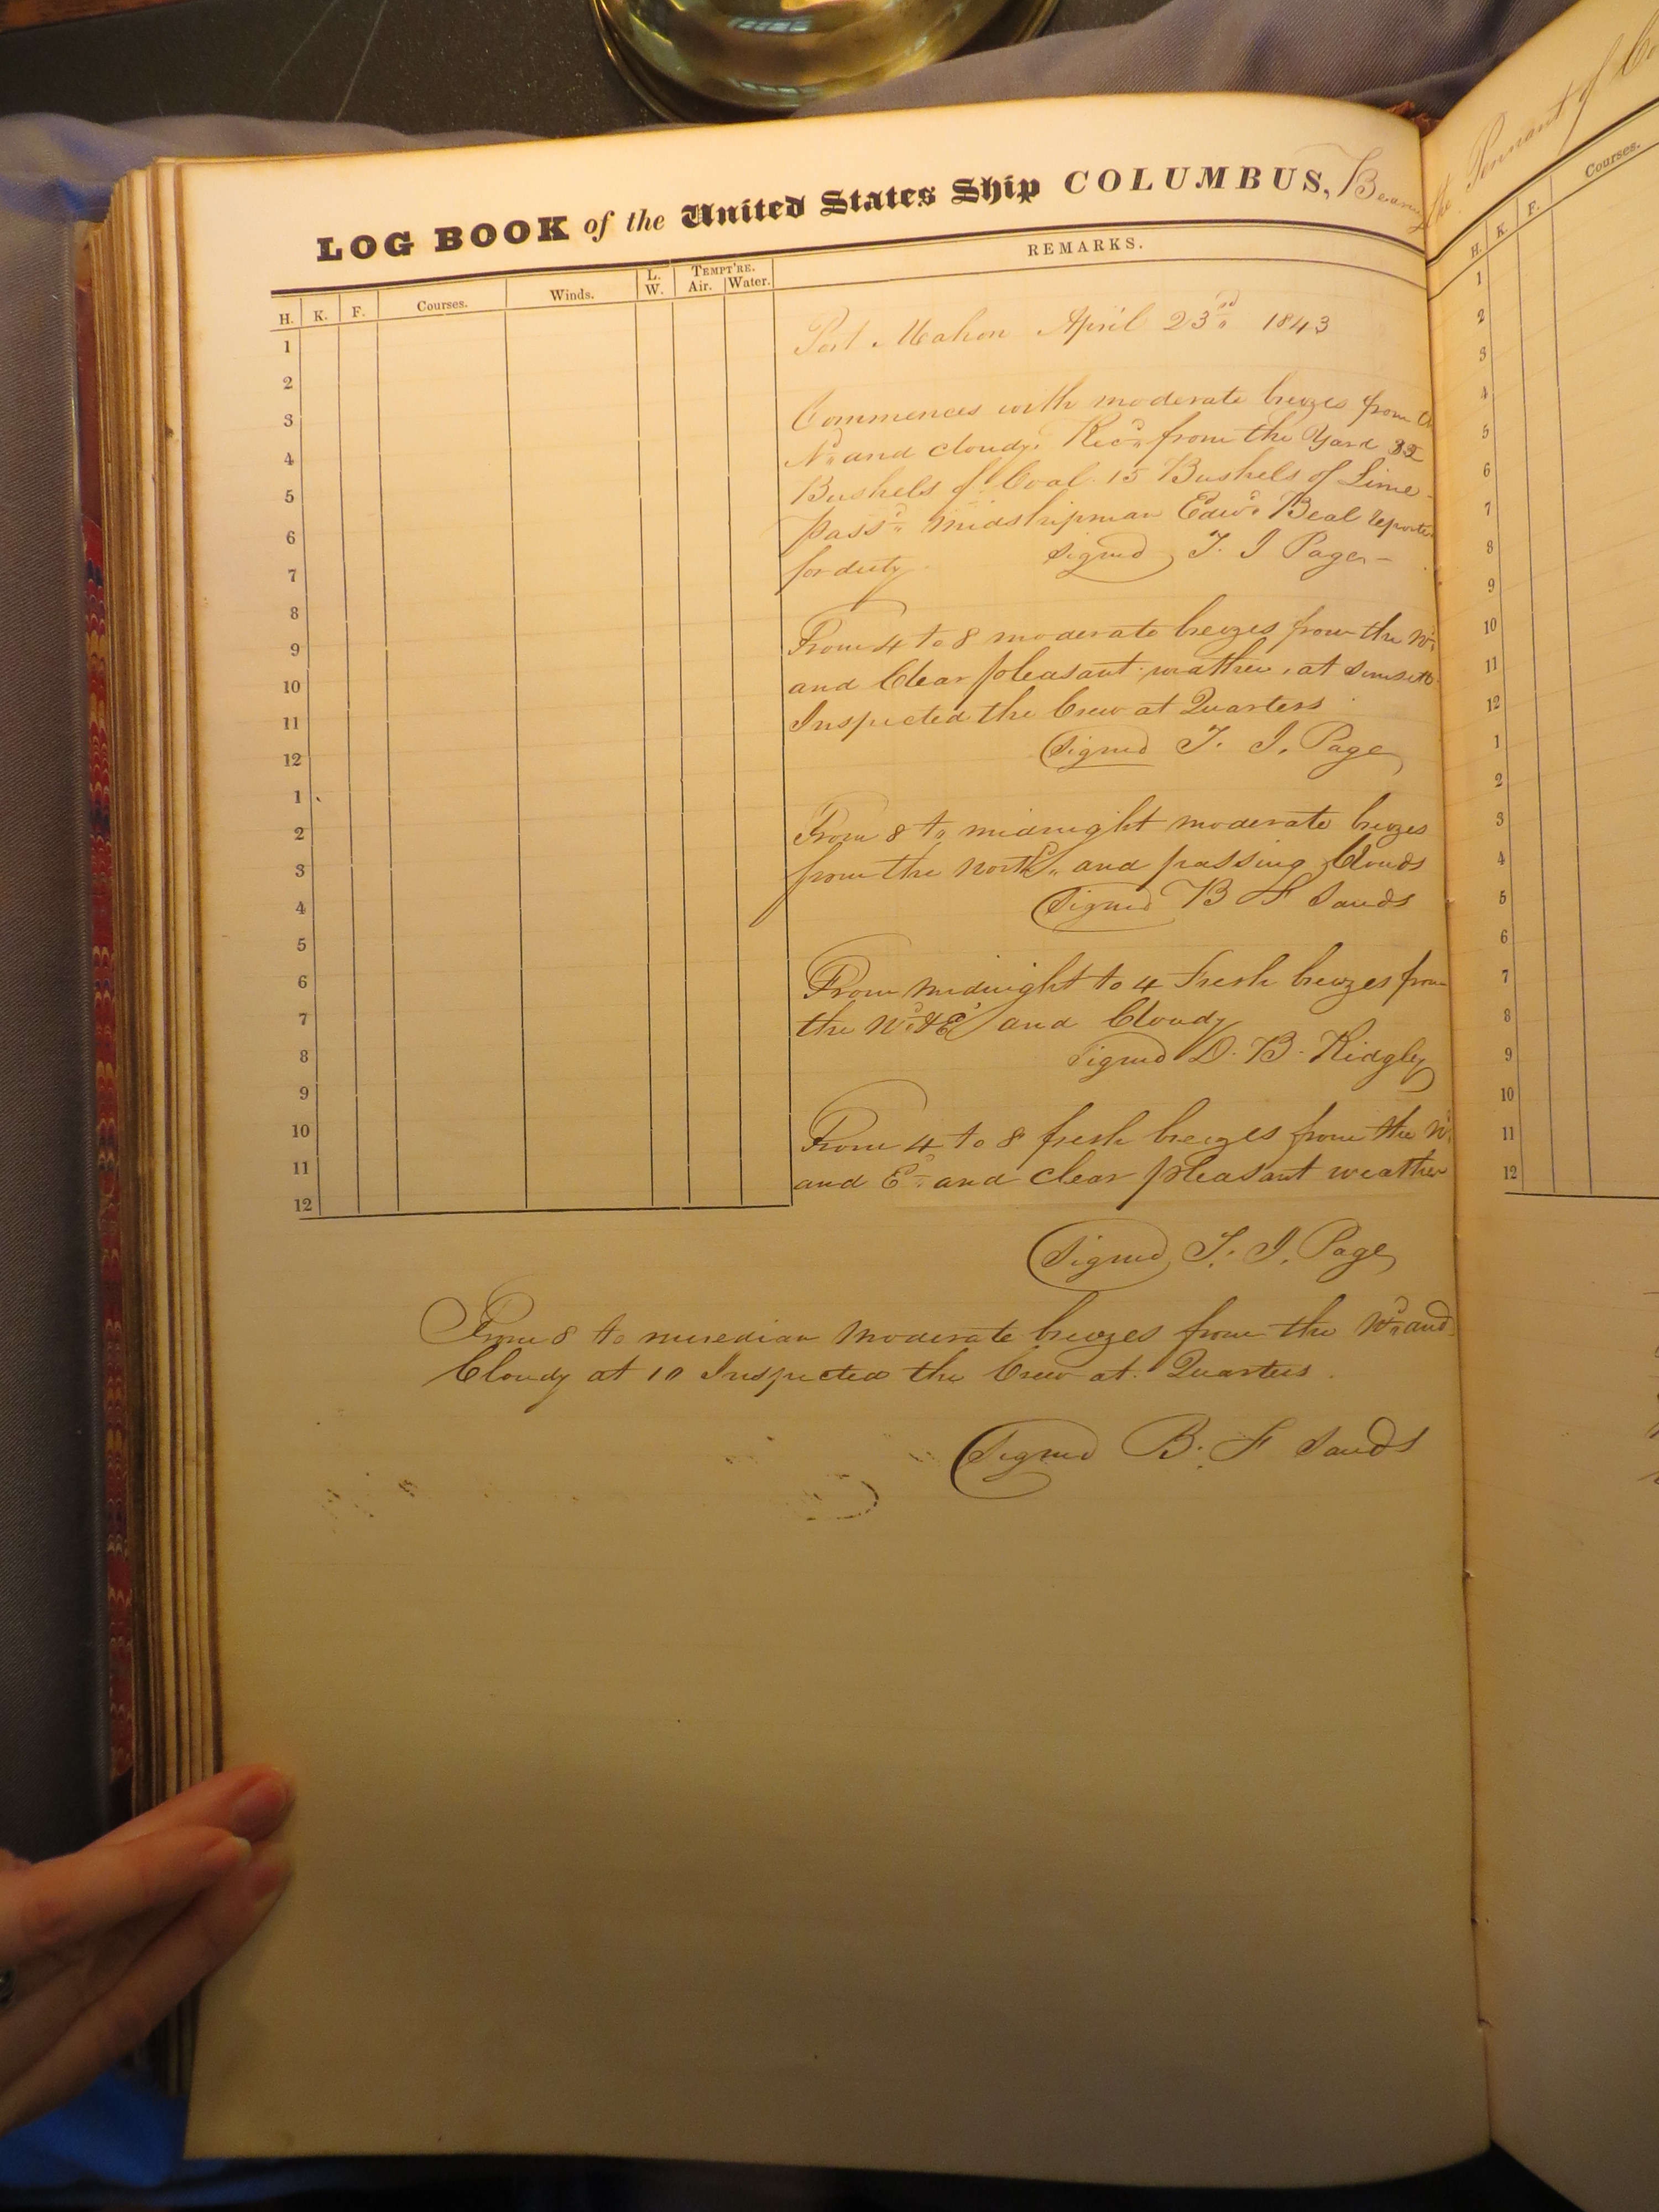 LOG BOOK of the United States Ship COLUMBUS, Bearing
H. K. F. Courses. Winds. L. W. TEMPT'RE. Air. Water. REMARKS.
1
2
3
4
5
6
7
8
9
10
11
12
1
2
3
4
5
6
7
8
9
10
11
12
Port Mahon April 23rd 1843
Commences with moderate breezes from
Nd and cloudy. Recd from the Yard
Bushels of Coal 15 Bushels of Lime
passd Midshipman Edwd Beal reported
for duty Signed T. J Page
From 4 to 8 moderate breezes from the
and Clear pleasant weather, at sunset
Inspected the Crew at Quarters
Signed T. J. Page
From 8 to midnight moderate breezes
from the Northd and passing Clouds
Signed B F Sands
From midnight to 4 Fresh breezes from
the Nd & Ed and Cloudy
Signed D. B. Ridgly
From 4 to 8 fresh breezes from the Nd
and Ed and clear pleasant weather
Signed T. J. Page
From 8 to meredian moderate breezes from the Nd and
Cloudy at 10 Inspected the Crew at Quarters.
Signed B. F Sands
the Pennant of
H. K. F. Courses.
1
2
3
4
5
6
7
8
9
10
11
12
1
2
3
4
5
6
7
8
9
10
11
12